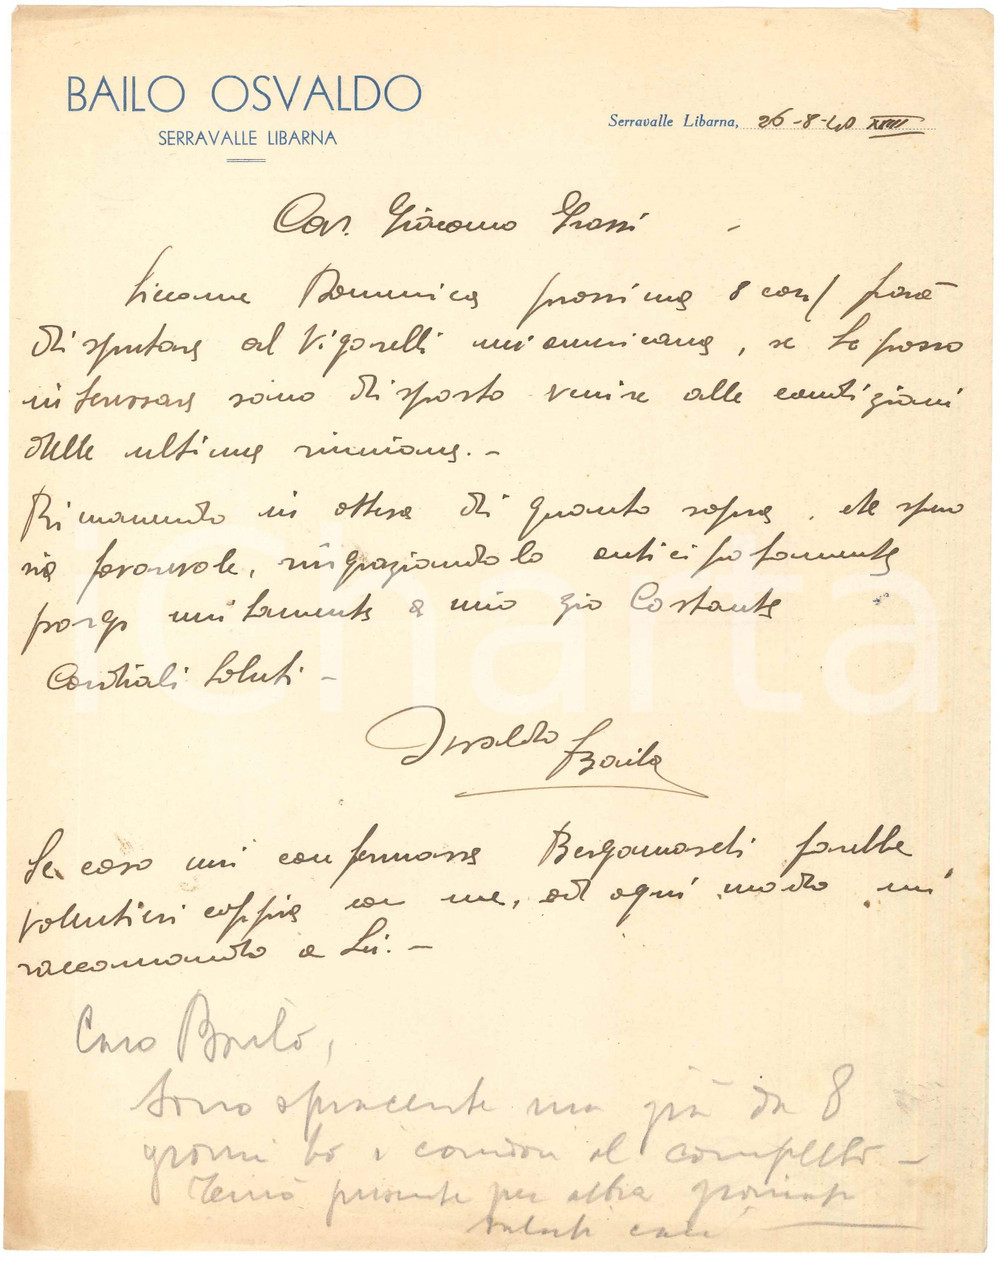 BAILO OSVALDO
SERRAVALLE LIBARNA
Serravalle Libarna, 26-8-40 XVIII
Cav. Giacomo Grassi -
Siccome Domenica prossima 8 corr/ farà
disputare al Vigorelli un'americana, se Le posso
interessare sono disposto venire alle condizioni
delle ultime riunione. -
Rimanendo in attesa di quanto sopra, che spero
sia favorevole, ringraziandola anticipatamente
porgo unitamente a mio zio Costante
Cordiali Saluti -
Osvaldo Bailo
Se caso mi confermasse Bergamaschi farebbe
volentieri coppia con me, ad ogni modo mi
raccomando a Lei. -
Caro Bailo,
Sono spiacente ma già da 8
giorni ho i corridori al completo -
Terrò presente per altra giornata
saluti cari
iCharta